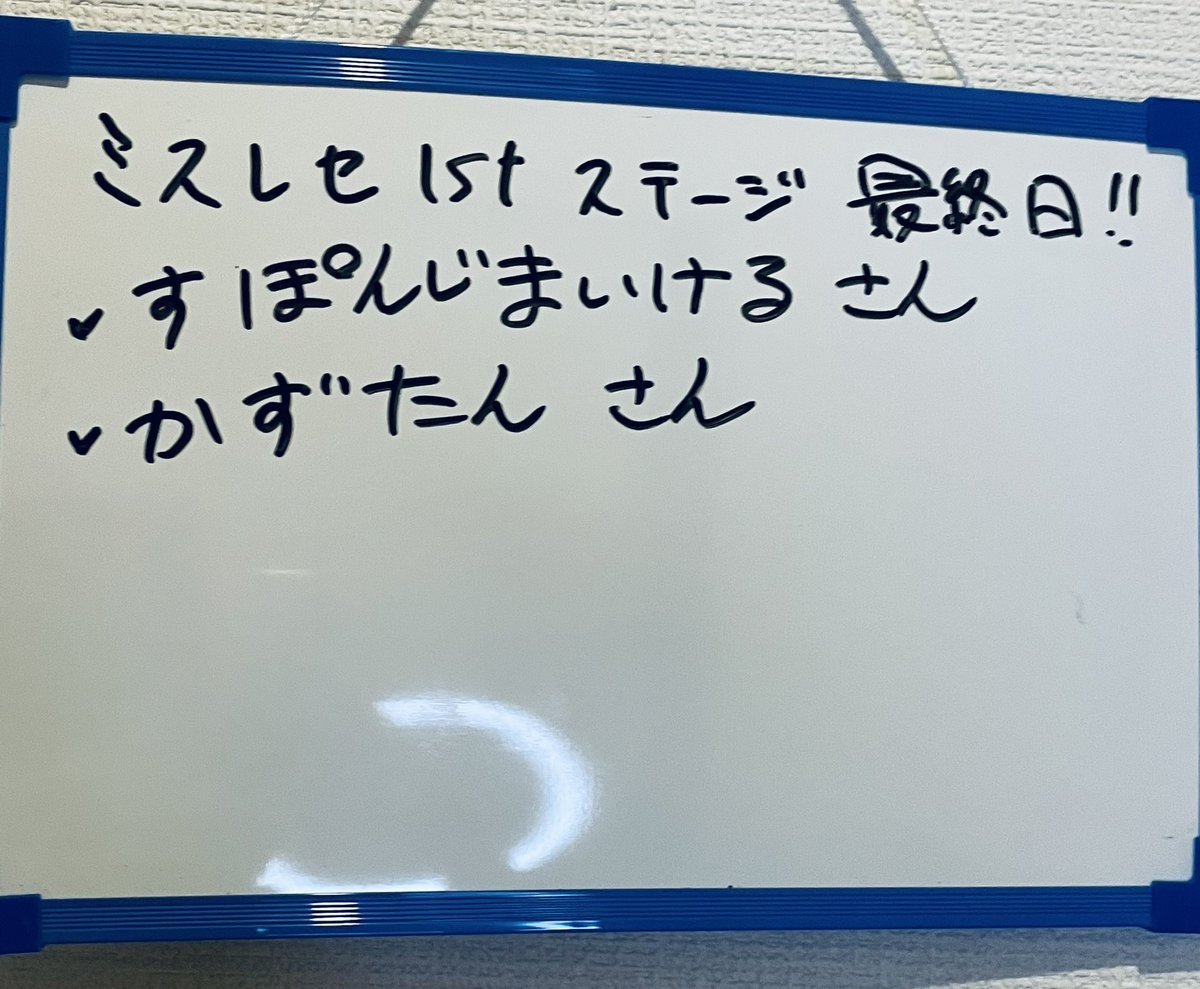 ミスレセ 1st ステージ 最終日!!
✓すぽんじまいける さん
✓かずたん さん